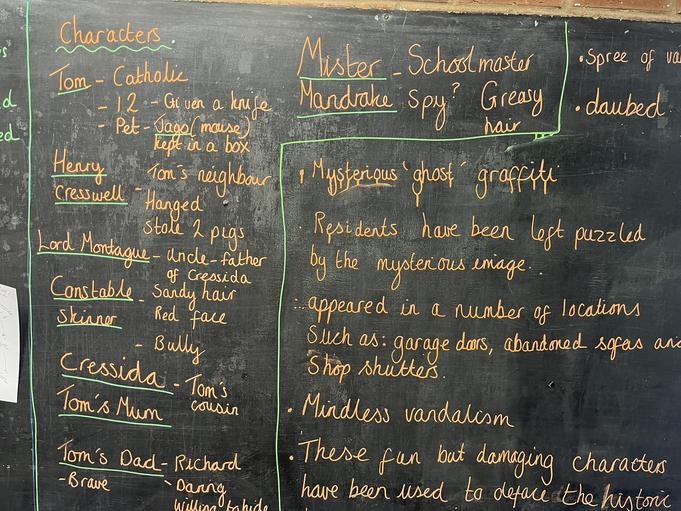 Characters
Tom - Catholic
- 12 - Given a knife
- Pet - Jago (mouse)
kept in a box
Henry Cresswell - Tom's neighbour
Hanged
Stole 2 pigs
Lord Montague - uncle - father
of Cressida
Constable Skinner - Sandy hair
Red face
- Bully
Cressida - Tom's
cousin
Tom's Mum
Tom's Dad - Richard
- Brave - Daring
willing to hide
Mister - Schoolmaster
Mandrake Spy? Greasy
hair
• Mysterious 'ghost' graffiti
• Residents have been left puzzled
by the mysterious image.
• appeared in a number of locations
Such as: garage doors, abandoned sofas and
Shop shutters.
• Mindless vandalism
• These fun but damaging characters
have been used to deface the historic
• Spree of va
• daubed
s
d
ed